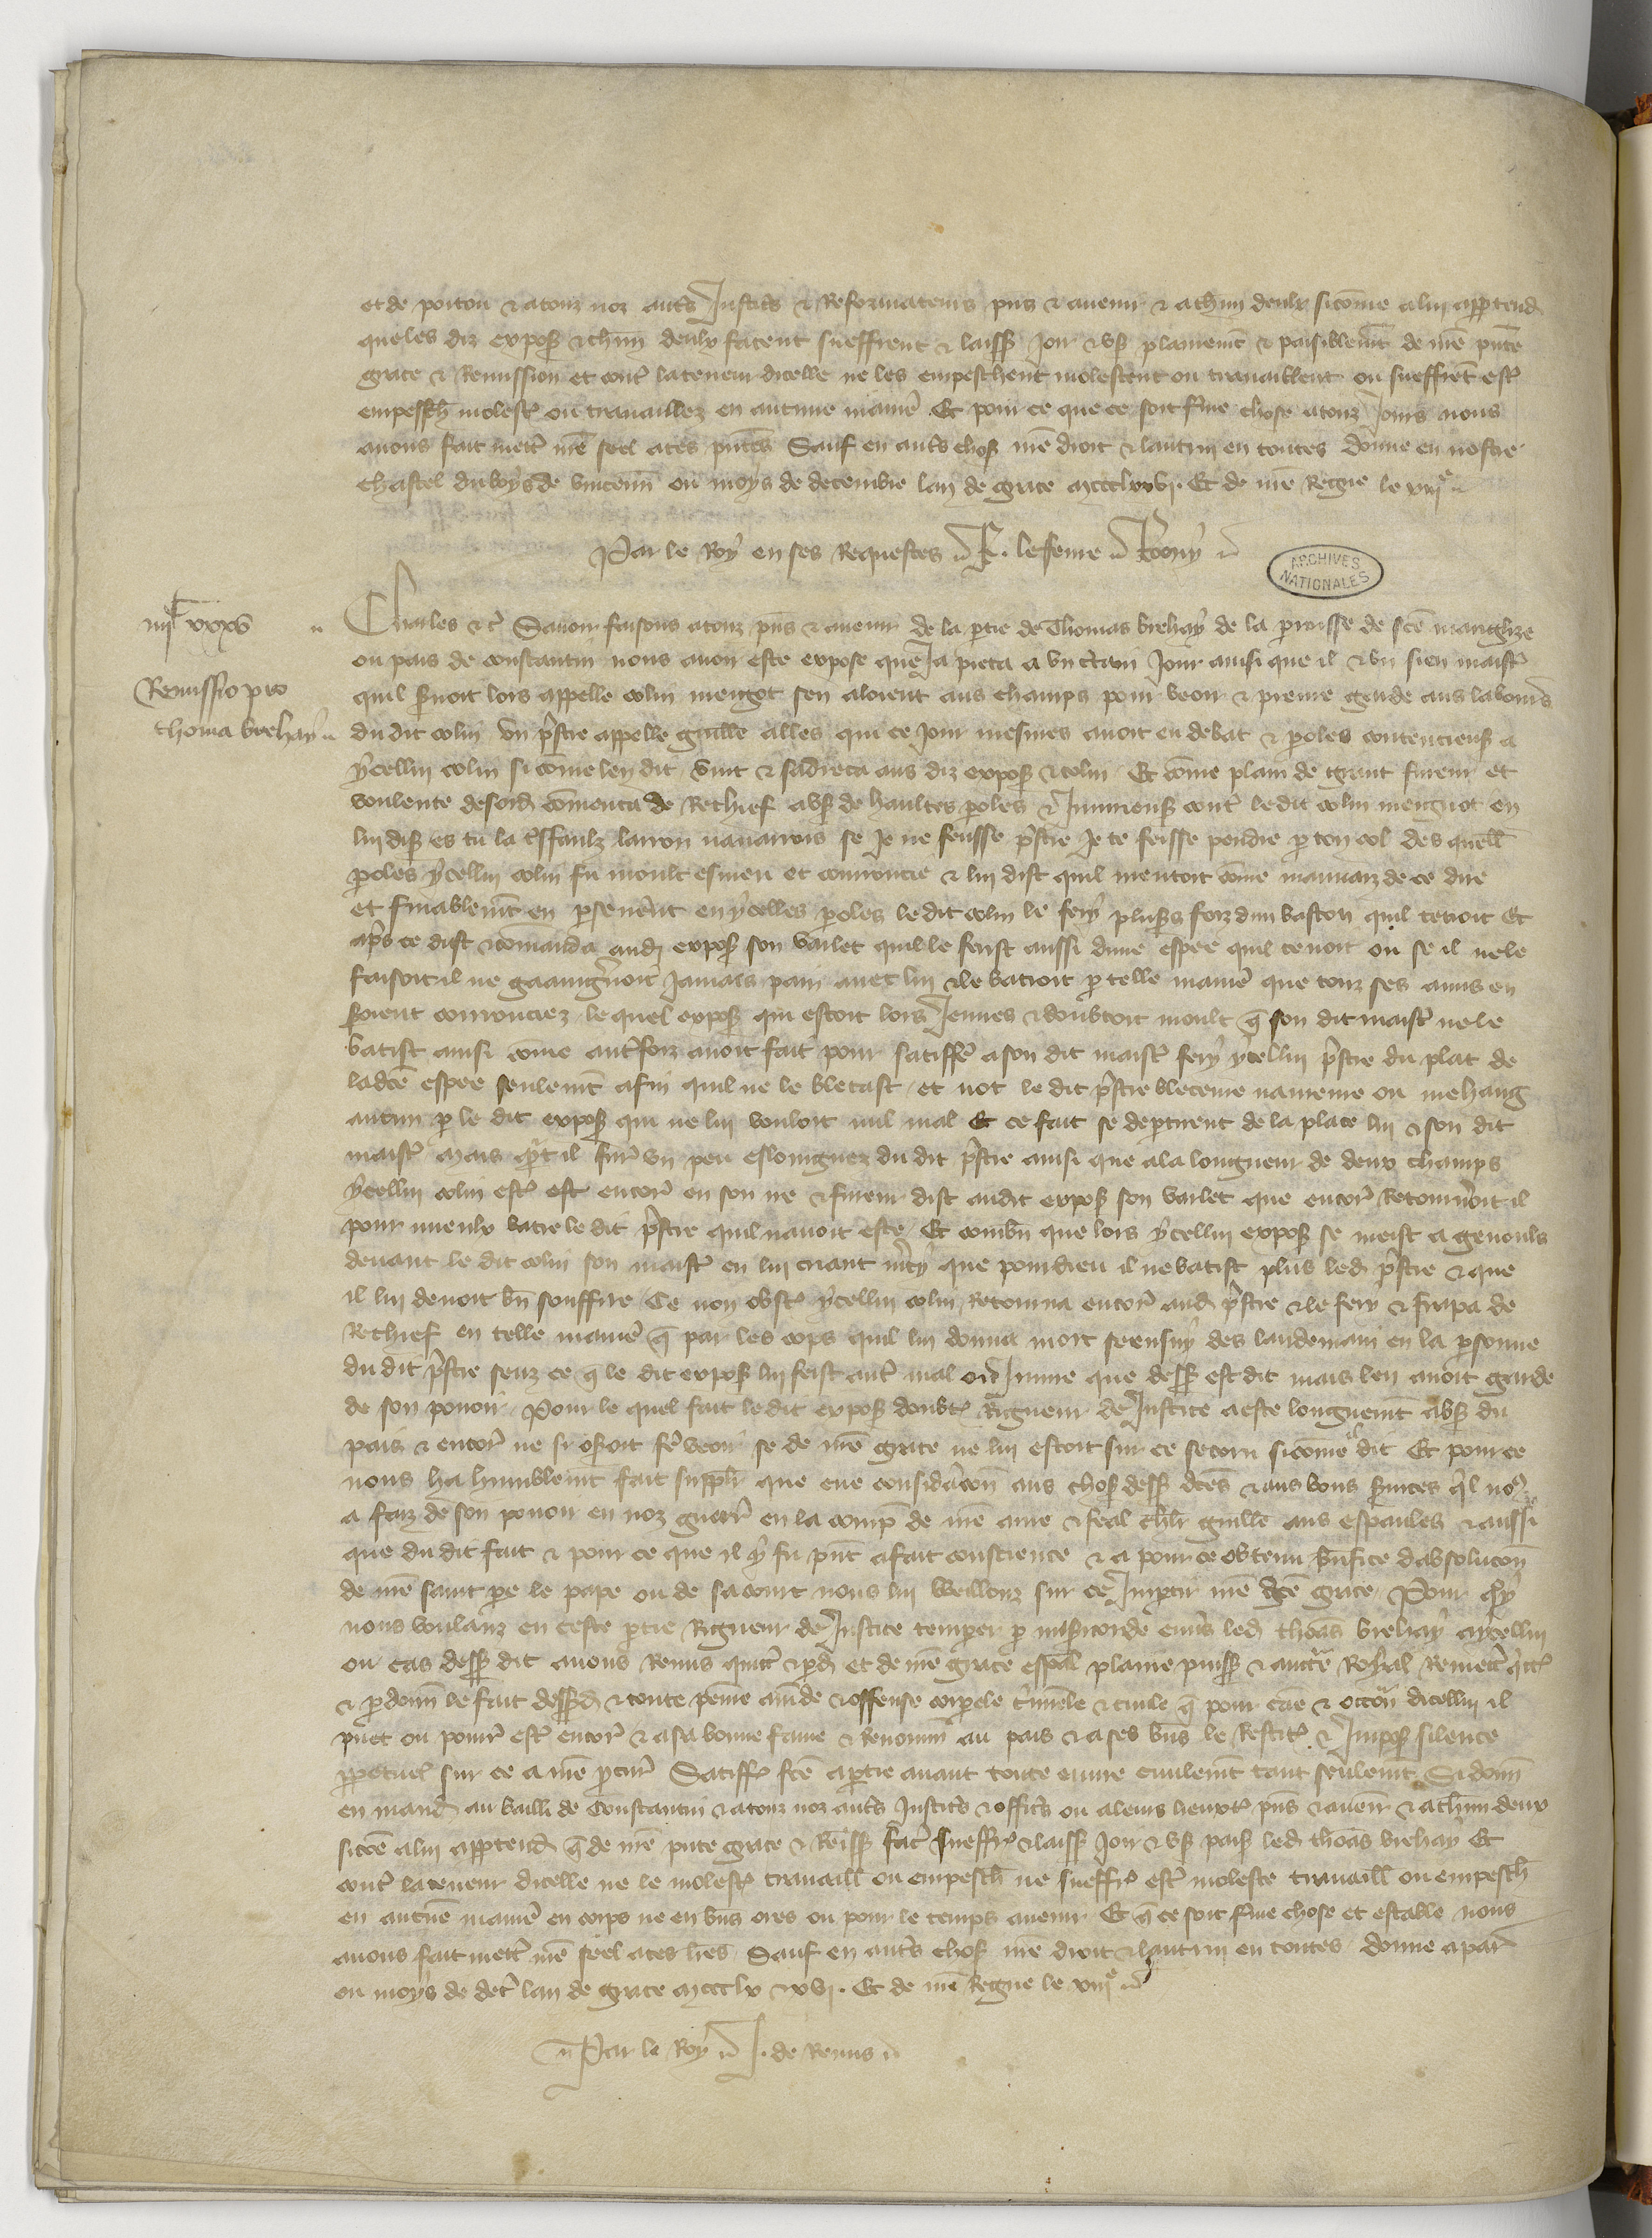 et de poitou & a touz noz autres Justiciers & Reformateurs pns & avenir & a chun deulx si come a lui appartend
que les diz expos & chun deulx facent sueffrent & laiss Joir & us plainemt & paisiblemt de nre pnte
grace & Remission et contre la teneur dicelle ne les empeschent molestent ou travaillent ou sueffrent estre
empeschiez molestez ou travaillez en aucune maniere Et pour ce que ce soit ferme chose a touz Jours nous
avons fait mettre nre seel a ces pntes Sauf en autres choses nre droit & lautrui en toutes donne en nostre
chastel du boys de vincenn ou moys de decembre lan de grace mccclxxvi. Et de nre Regne le xiije
Par le Roy en ses Requestes
ARCHIVES NATIONALES
iiijc xxxv
Remissio pro
thoma brehay
Charles &c Savoir faisons a touz pns & avenir de la ptie de Thomas brehay de la parrosse de sce marguerite
ou pais de constantin nous avoir este expose que Ja pieca a un ctain Jour ainsi que il & un sien maistre
quil servoit lors appelle colin mengot sen aloient aus champs pour veoir & prenre garde aus laboureurs
du dit colin un prestre appelle guille alles qui ce Jour mesmes avoit eu debat & paroles contencieuses a
ycellui colin si come len dit vint & sadreca aus diz expos & colin Et come plain de grant fureur et
voulente desord comenca de Rechief a user de haultes paroles & Injurieuses contre ledit colin mengot en
lui dis es tu la larron navarrois se Je ne feusse prestre Je te feisse pendre par ton col des quell
paroles ycellui colin fu moult esmeu et couroucie & lui dist quil mentoit come mauvaiz de ce dire
et finablemt en perseverant en ycelles paroles ledit colin le fery plusrs foiz dun baston quil tenoit Et
apres ce dist & comanda aud expos son vallet quil le ferist aussi dune espee quil tenoit ou se il ne le
faisoit il ne gaaigneroit Jamais pain avec lui & le batroit par telle maniere que touz ses amis en
seroient courouciez le quel expos qui estoit lors Jeunes & doubtoit moult que son dit maistre ne le
batist ainsi come autrefoiz avoit fait pour satiffere a son dit maistre fery ycellui prestre du plat de
ladce espee seulemt afin quil ne le blecast et not le dit prestre bleceure navreure ou mehaing
aucun par le dit expos qui ne lui vouloit nul mal Et ce fait se departirent de la place lui & son dit
maistre Mais quant il furent un peu esloingnez du dit prestre ainsi que a la longueur de deux champs
ycellui colin encore en son ire & fureur dist audit expos son vallet que encore Retourneroit il
pour mieulx batre le dit prestre quil navoit este Et combn que lors ycellui expos se meist a genoulx
devant le dit colin son maistre en lui criant mercy que pour dieu il ne batist plus led prestre & que
il lui devoit bn souffire Ce non obstant ycellui colin Retourna encore aud prestre & le fery & frapa de
Rechief en telle maniere que par les cops quil lui donna mort seensuy des landemain en la personne
du dit prestre senz ce que le dit expos lui feist autre mal ou Injure que dess est dit mais len avoit garde
de son povoir Pour le quel fait le dit expos doubtant Rigueur de Justice a este longuemt abs du
pais & encore ne si oseroit fere veoir se de nre grace ne lui estoit sur ce secoru si come dit Et pour ce
nous ha humblemt fait supplier que eue consideracon aus choses dess dces & aus bons services quil nous
a faiz de son povoir en noz guerres en la comp de nre ame & feal chlr guille aus espaules & aussi
que du dit fait & pour ce que il y fu pnt a fait conscience & a pour ce obtenu benefice dabsolucon
de nre saint pere le pape ou de sa court nous lui Weillons sur ce Impartir nre dce grace Pour quoy
nous voulanz en ceste ptie Rigueur de Justice temperer par misericorde envers led thomas brehay a ycellui
ou cas dess dit avons Remis quicte & pardonne et de nre grace especial plaine puiss & auctorite Royal Remettons quictons
& pardonn le fait dessusd & toute peine amende & offense corporele criminele & civile que pour cause & occasion dicellui il
puet ou pourroit estre encoru & a sa bonne fame & Renommee au pais & a ses biens le Restituons & Imposons silence
perpetuel sur ce a nre procureur Satiffacion fce a partie avant toute euvre civilemt tant seulemt Si donn
en mand au bailli de Constantin & a touz noz autres Justiciers & officiers ou a leurs lieuxten pns & avenir & a chun deux
si come a lui appartend que de nre pnte grace & Remission facent sueffrent & laissent Joir & user paisiblement led thomas brehay Et
contre la teneur dicelle ne le molestent travaillent ou empeschent ne sueffrent estre moleste travaillie ou empeschie
en aucune maniere en corps ne en biens ores ou pour le temps avenir Et que ce soit ferme chose et estable nous
avons fait mettre nre seel a ces lres Sauf en autres choses nre droit & lautrui en toutes donne a paris
ou moys de decembre lan de grace mccclx & xvi. Et de nre Regne le xiije
Par le Roy J. de Remis